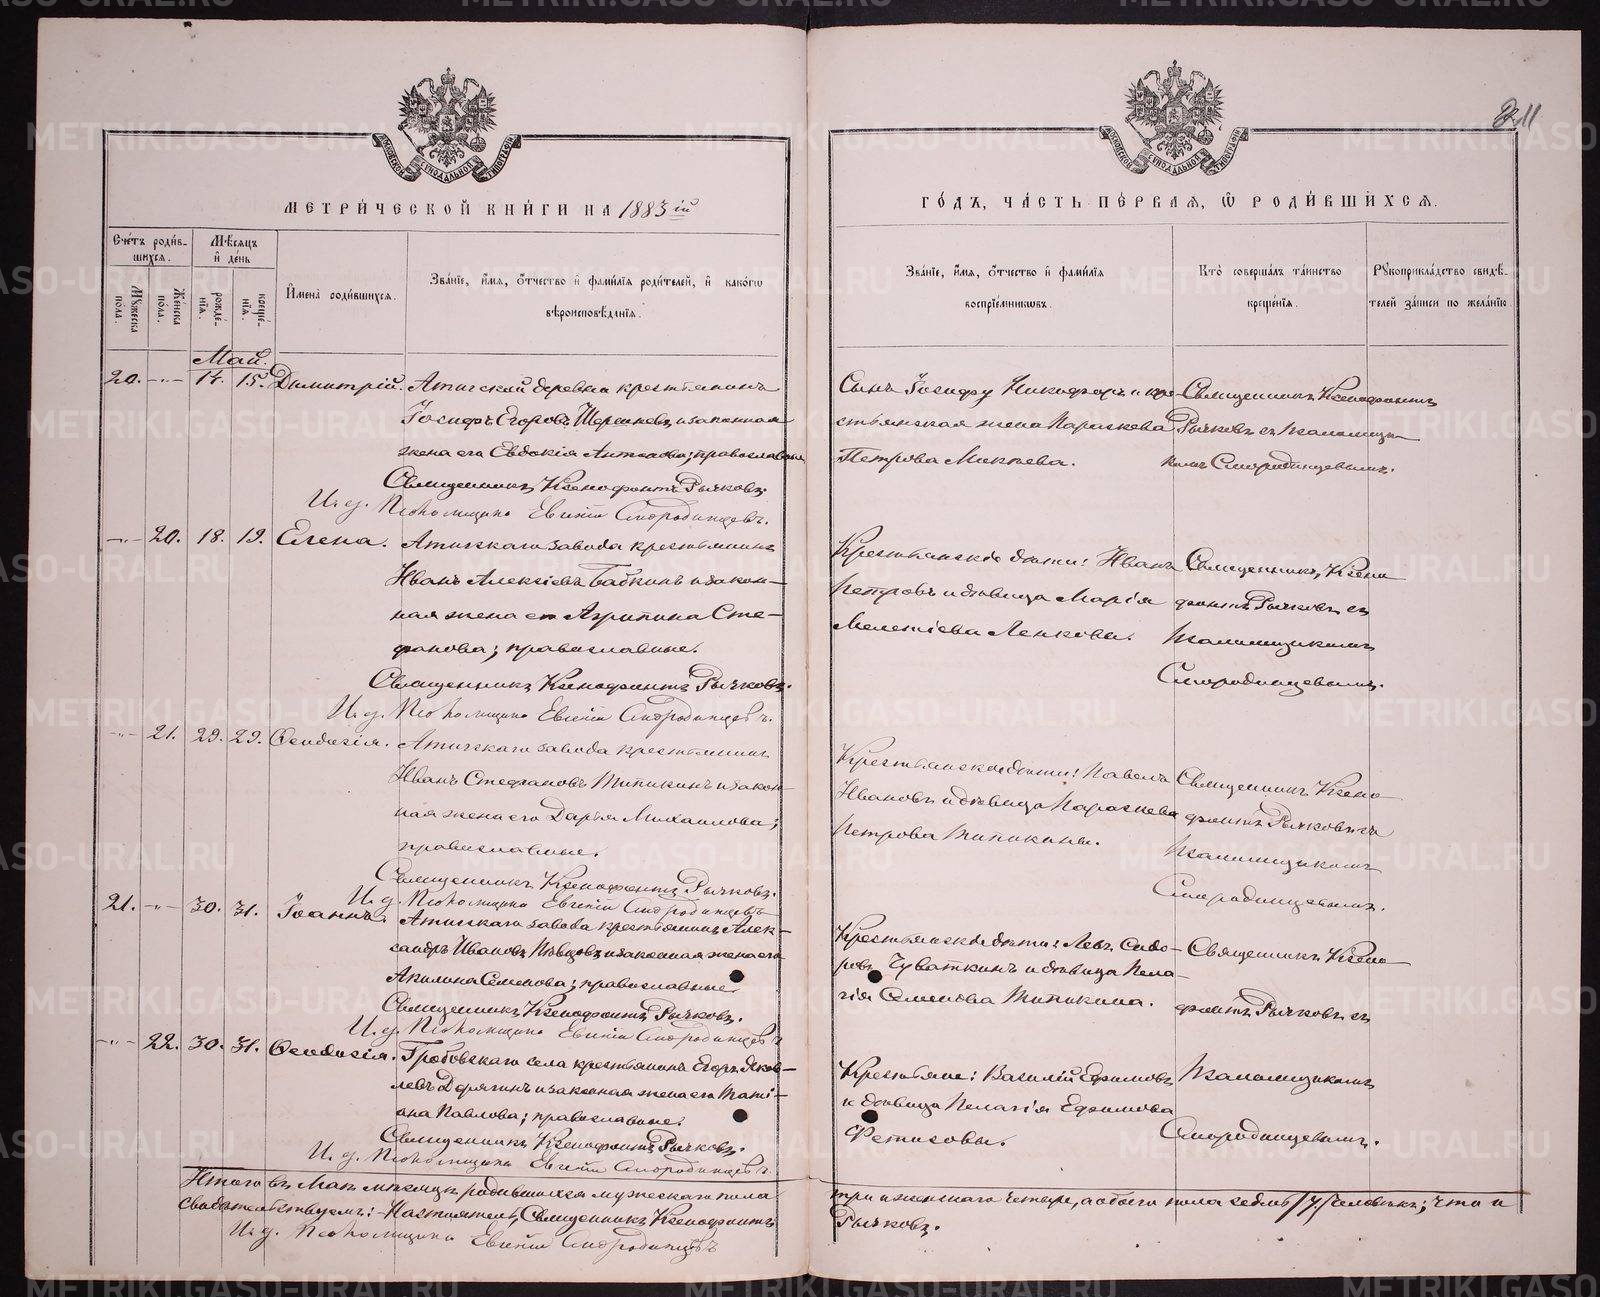 МЕТРИ́ЧЕСКОЙ КНИ́ГИ НА 1883 ій
ГО́ДЪ, ЧА́СТЬ ПЕ́РВАЯ, Ѡ РОДИ́ВШИХСЯ.
211
Сче́тъ роди́вшихся.
Му́жеска по́ла.
Же́нска по́ла.
Мѣ́сяцъ и҆ де́нь
рожде́нїя.
креще́нїя.
И҆мена̀ роди́вшихся.
Зва́нїе, и҆́мя, ѻ҆́тчество и҆ фами́лїя роди́телей, и҆ како́гѡ
вѣроисповѣ́данїя.
Зва́нїе, и҆́мя, ѻ҆́тчество и҆ фами́лїя
воспрїе́мниковъ.
Кто̀ соверша́лъ та́инство
креще́нїя.
Рꙋкоприкла́дство свидѣ́телей за́писи по жела́нїю.
Май.
20. -"- 14. 15. Димитрій. Атигской деревни крестьянинъ
Іосифъ Егоровъ и законная
жена его Евдокія Антонова; православные
Священникъ Ксенофонтъ Рычковъ.
И. д. Псаломщика Евгеній Смородинцевъ.
Сынъ
стьянская жена Параскева
Петрова
Священникъ Ксенофонтъ
Рычковъ съ Псаломщикомъ Смородинцевымъ.
-"- 20. 18. 19. Елена. Атигскаго завода крестьянинъ
Иванъ Алексіевъ Бабкинъ и закон-
ная жена его Агрипина Сте-
фанова; православные.
Священникъ Ксенофонтъ Рычковъ.
И. д. Псаломщика Евгеній Смородинцевъ.
Крестьянскіе дѣти: Иванъ
Петровъ и дѣвица Марія
Мелетіева Ленковы.
Священникъ Ксено
фонтъ Рычковъ съ
Псаломщикомъ
Смородинцевымъ.
-"- 21. 29. 29. Ѳеодосія. Атигскаго завода крестьянинъ
Иванъ Стефановъ Типикинъ и закон-
ная жена его Дарья Михаилова;
православные.
Священникъ Ксенофонтъ Рычковъ.
И. д. Псаломщика Евгеній Смородинцевъ
Крестьянскіе дѣти: Павелъ
Ивановъ и дѣвица Параскева
Петрова Типикины.
Священникъ Ксено
фонтъ Рычковъ съ
Псаломщикомъ
Смородинцевымъ.
21. -"- 30. 31. Іоаннъ. Атигскаго завода крестьянинъ Алек-
сандръ Ивановъ Пѣвцовъ и законная жена его
Акилина Семенова; православные
Священникъ Ксенофонтъ Рычковъ.
И. д. Псаломщика Евгеній Смородинцевъ
Крестьянскіе дѣти: Левъ Сидо-
ровъ Чуваткинъ и дѣвица Пела-
гія Семенова Типикина.
Священникъ Ксено
фонтъ Рычковъ съ
-"- 22. 30. 31. Ѳеодосія. Гробовскаго села крестьянинъ Егоръ Яков-
левъ Дерягинъ и законная жена его Тати-
ана Павлова; православные.
Священникъ Ксенофонтъ Рычковъ.
И. д. Псаломщика Евгеній Смородинцевъ.
Крестьяне: Василій Ефимовъ
и дѣвица Пелагія Ефимова
Фетисовы.
Псаломщикомъ
Смородинцевымъ.
Итого въ Маѣ мѣсяцѣ родившихся мужескаго пола
три и женскаго четыре, а обоего пола седмь /7/ человѣкъ; что и
свидѣтельствуемъ: Настоятель, Священникъ Ксенофонтъ
Рычковъ.
И. д. Псаломщика Евгеній Смородинцевъ